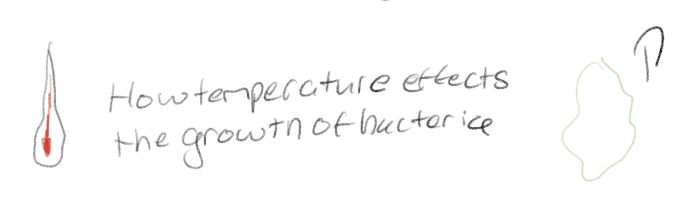 How temperature effects
the growth of bacteria